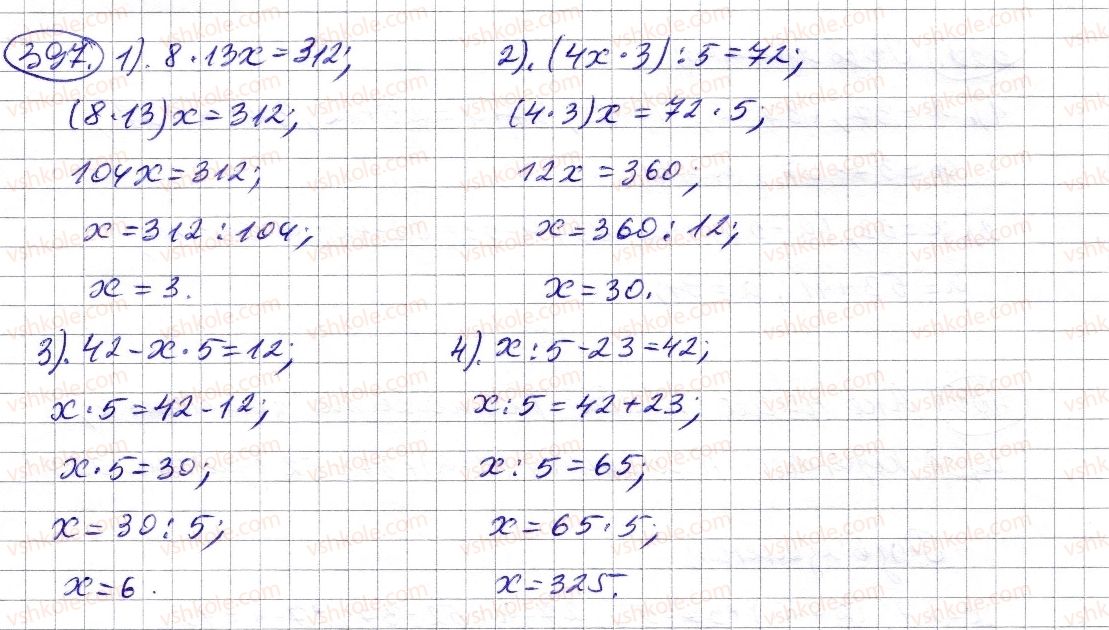 397. 1). 8·13x=312;
(8·13)x=312;
104x=312;
x=312:104;
x=3.
2). (4x·3):5=72;
(4·3)x=72·5;
12x=360;
x=360:12;
x=30.
3). 42-x·5=12;
x·5=42-12;
x·5=30;
x=30:5;
x=6.
4). x:5-23=42;
x:5=42+23;
x:5=65;
x=65·5;
x=325.
vshkole.com